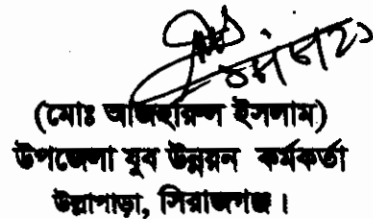 (মোঃ আজহারুল ইসলাম)
উপজেলা যুব উন্নয়ন কর্মকর্তা
উল্লাপাড়া, সিরাজগঞ্জ।